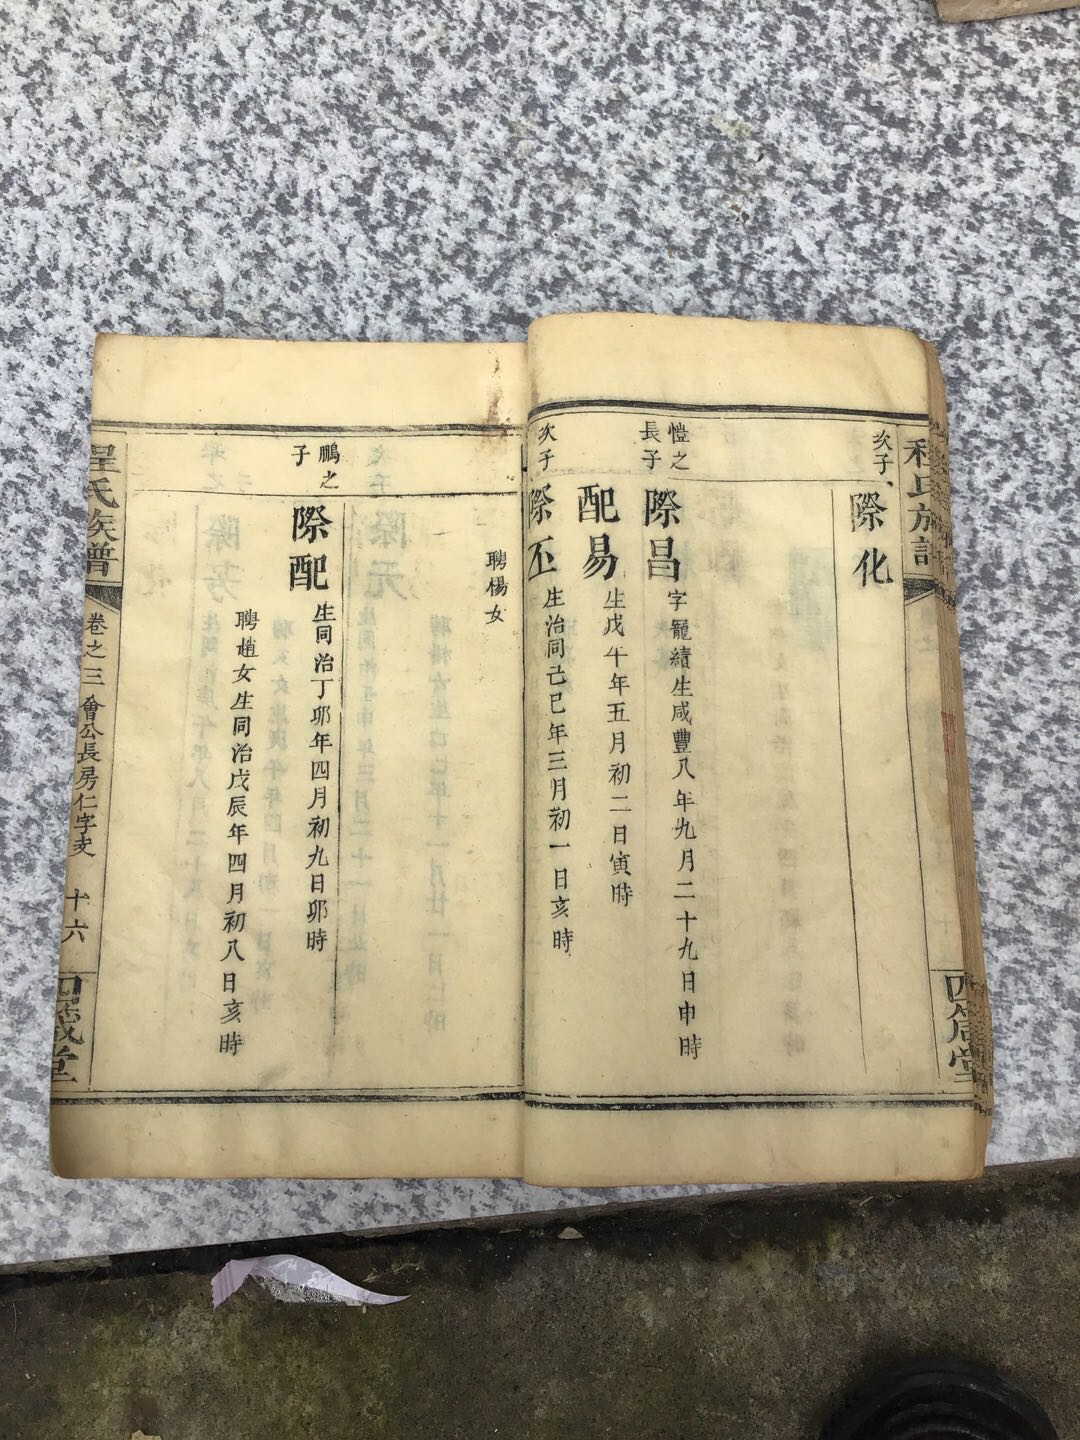 程氏族譜
四箴堂
次子
際化
愷之
長子
際昌
字龍績生咸豐八年九月二十九日申時
配易
生戊午年五月初二日寅時
次子
際丕
生治同己巳年三月初一日亥時
聘楊女
鵬之
子
際配
生同治丁卯年四月初九日卯時
聘趙女生同治戊辰年四月初八日亥時
程氏族譜
卷之三
會公長房仁字支
十六
四箴堂